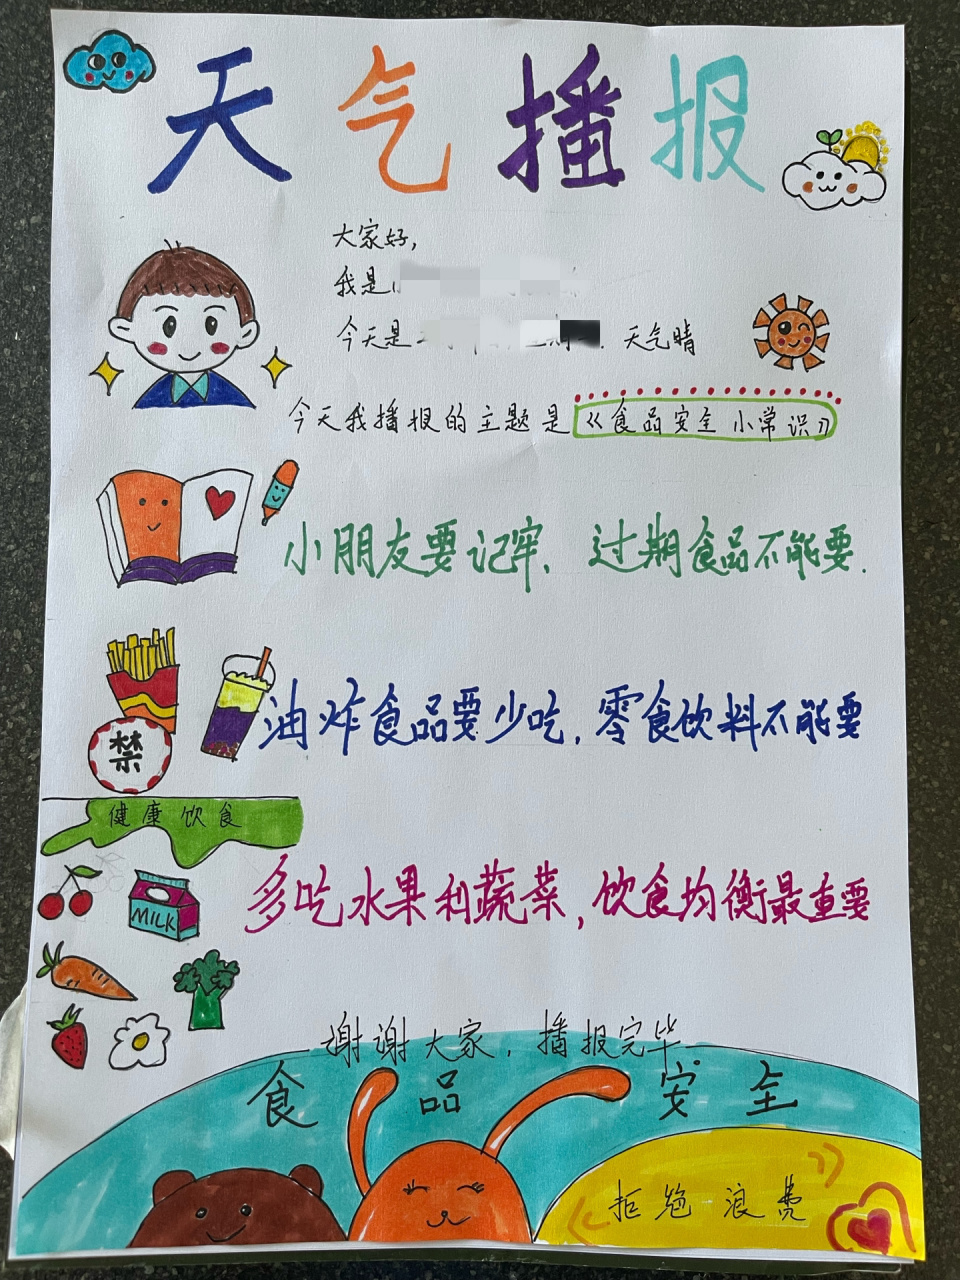 天气播报
大家好，
我是
今天是
天气晴
今天我播报的主题是《食品安全小常识》
小朋友要记牢、过期食品不能要.
油炸食品要少吃，零食饮料不能要
禁
健康饮食
多吃水果和蔬菜，饮食均衡最重要
MILK
谢谢大家，播报完毕
食品安全
《拒绝浪费》